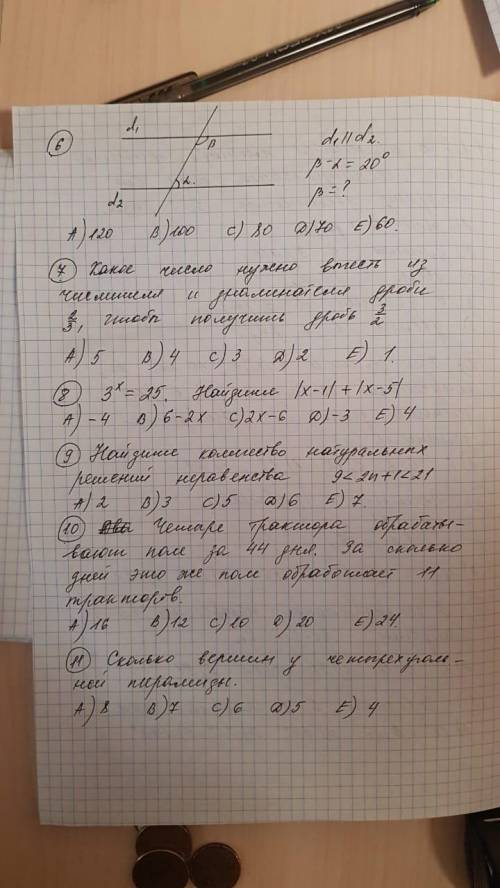 6
d1
β
α.
d2
d1 || d2.
β-α = 20°
β = ?
A) 120 B) 100 C) 80 D) 70 E) 60.
7 Какое число нужно вычесть из
числителя и знаменателя дроби
2/3, чтобы получить дробь 3/2
A) 5 B) 4 C) 3 D) 2 E) 1.
8 3^x = 25. Найдите |x-1| + |x-5|
A) -4 B) 6-2x C) 2x-6 D) -3 E) 4
9 Найдите количество натуральных
решений неравенства 9<2n+1<21
A) 2 B) 3 C) 5 D) 6 E) 7.
10 Четыре трактора обрабаты-
вают поле за 44 дня. За сколько
дней это же поле обработает 11
тракторов.
A) 16 B) 12 C) 10 D) 20 E) 24.
11 Сколько вершин у четырехуголь-
ной пирамиды.
A) 8 B) 7 C) 6 D) 5 E) 4